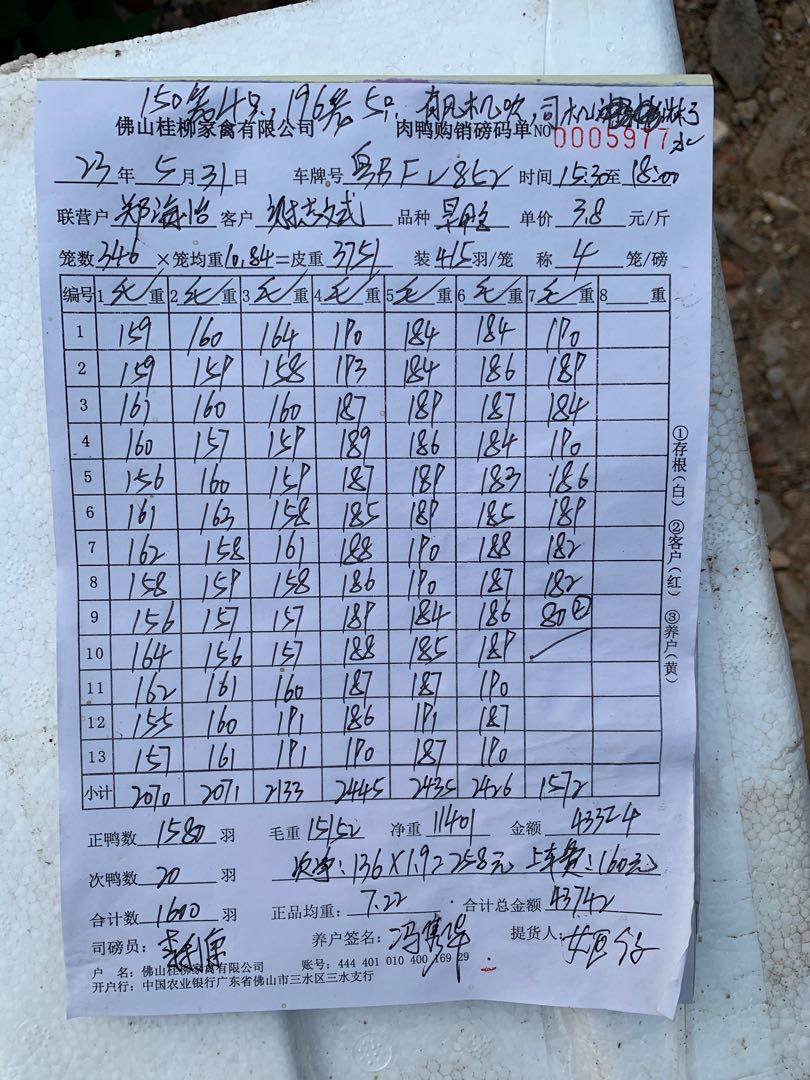 150笼4只,196笼5只 有风机吹,司机
佛山桂柳家禽有限公司 肉鸭购销磅码单 NO 0005977
23年5月31日 车牌号 粤BFV852 时间15:30至18:00
联营户 郑海怡 客户 品种 单价 3.8 元/斤
笼数346×笼均重10.84=皮重3751 装4/5羽/笼 称4笼/磅
编号 1毛重 2毛重 3毛重 4毛重 5毛重 6毛重 7毛重 8重
1 159 160 164 190 184 184 190
2 159 159 158 193 184 186 189
3 161 160 160 187 189 187 184
4 160 157 159 189 186 184 190
5 156 160 159 187 189 183 186
6 161 163 158 185 189 185 189
7 162 158 161 188 190 188 182
8 158 159 158 186 190 187 182
9 156 157 157 189 184 186 80②
10 164 156 157 188 185 189
11 162 161 160 187 187 190
12 155 160 191 186 191 187
13 157 161 191 190 187 190
小计 2070 2071 2133 2445 2435 2426 1572
正鸭数 1580 羽 毛重 15152 净重 11401 金额 43324
次鸭数 20 羽 次字:136×1.9=258元 上车费:160元
合计数 1600 羽 正品均重: 7.22 合计总金额 43742
司磅员: 养户签名: 提货人:
户 名:佛山桂柳家禽有限公司 账号:444 401 010 400 169 29
开户行:中国农业银行广东省佛山市三水区三水支行
①存根(白) ②客户(红) ③养户(黄)